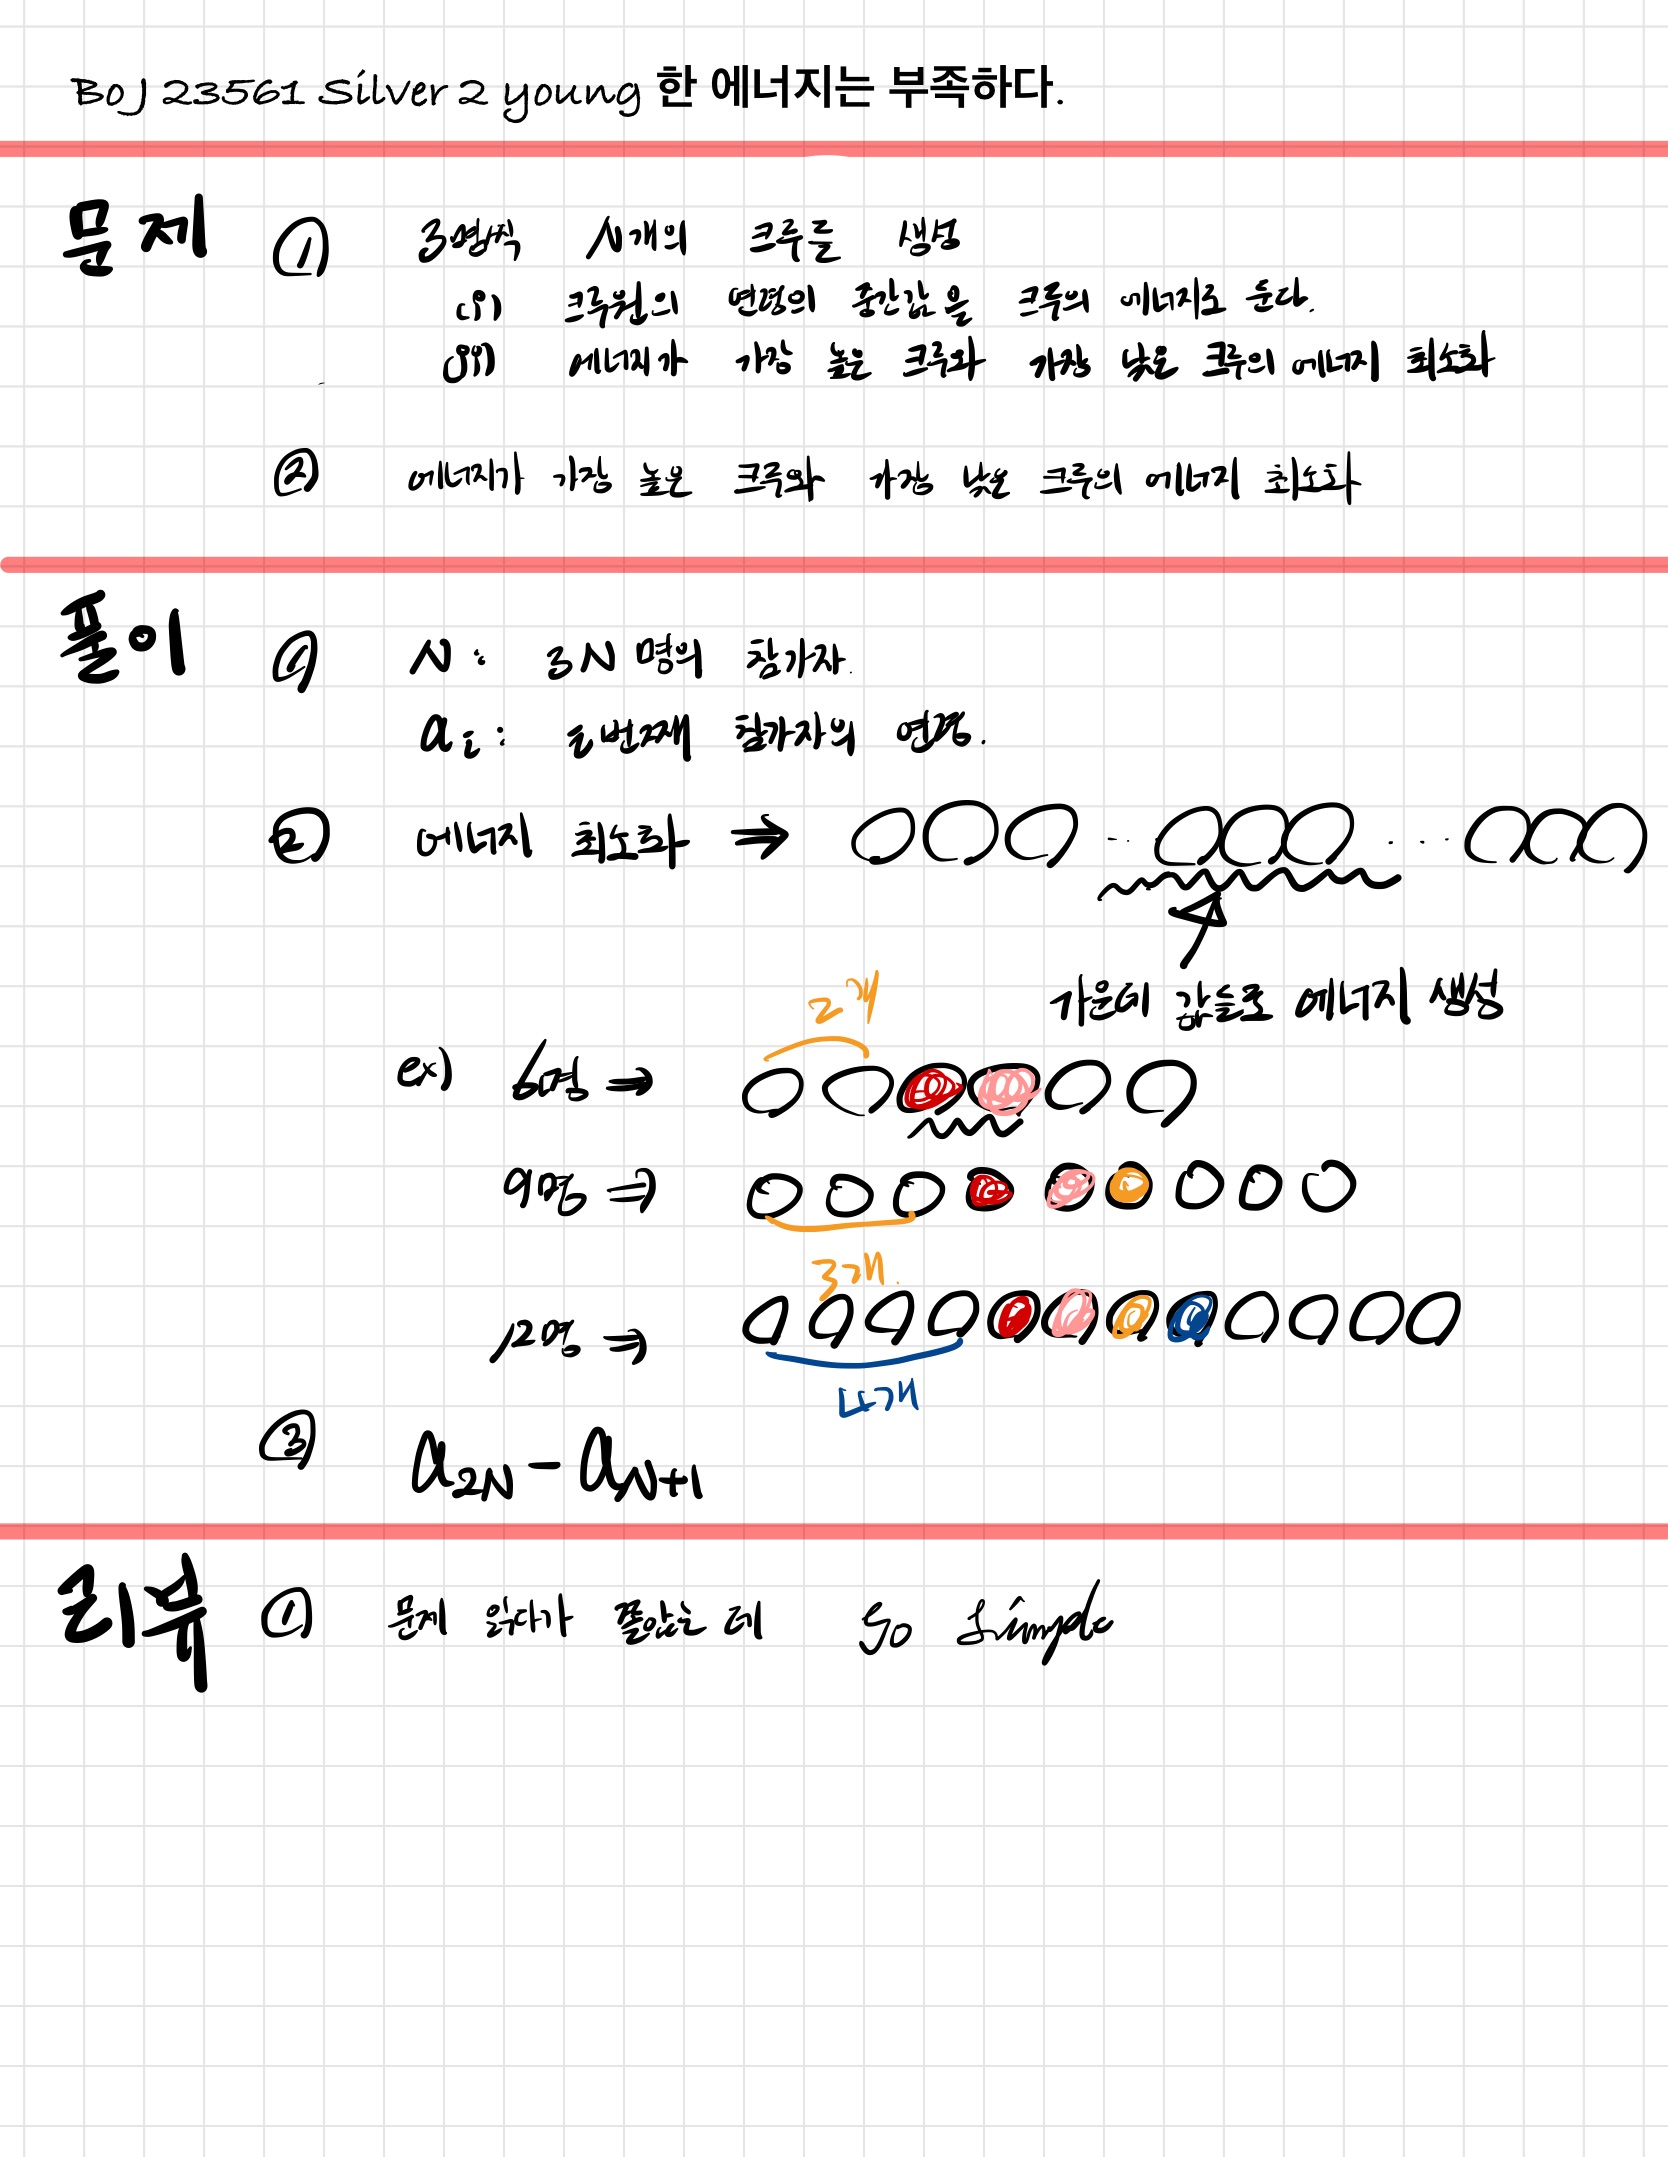 BOJ 23561 Silver 2 young 한 에너지는 부족하다.
문제 ① 3명씩 N개의 크루를 생성
(i) 크루원의 연령의 중간값을 크루의 에너지로 둔다.
(ii) 에너지가 가장 높은 크루와 가장 낮은 크루의 에너지 최소화
② 에너지가 가장 높은 크루와 가장 낮은 크루의 에너지 최소화
풀이 ① N : 3N명의 참가자.
ai : i번째 참가자의 연령.
② 에너지 최소화 →
가운데 값들로 에너지 생성
2개
ex) 6명 ⇒
9명 ⇒
3개.
12명 ⇒
4개
③ a2N - aN+1
리뷰 ① 문제 읽다가 쫄았는 데 So simple